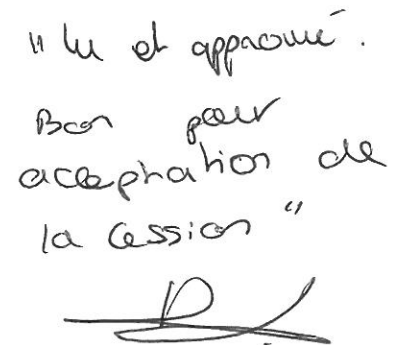 "Lu et approuvé.
Bon pour
acceptation de
la cession"